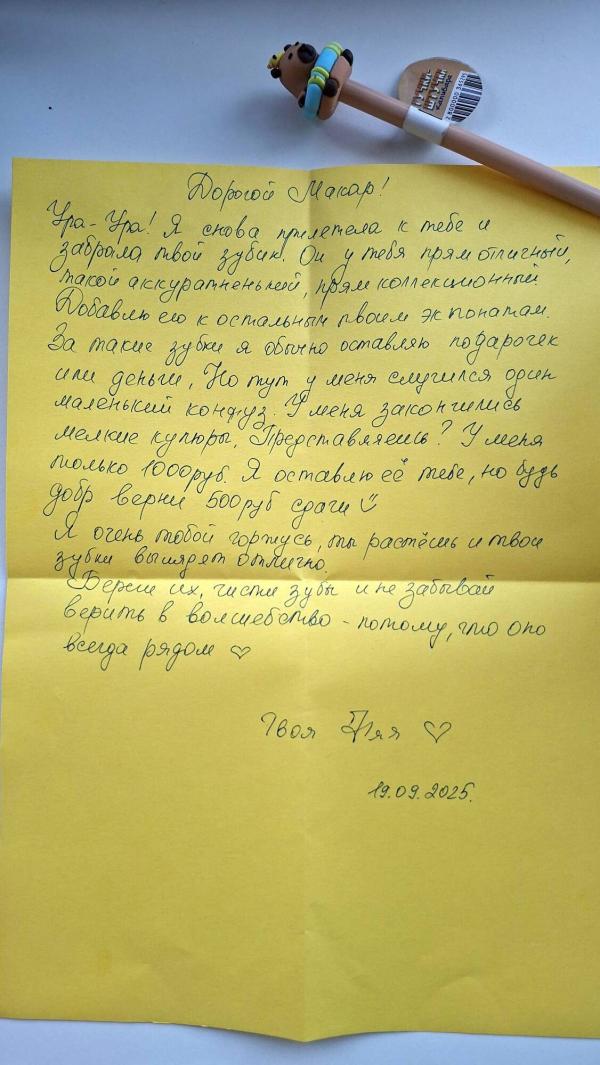 Капибара
Дорогой Макар!
Ура-Ура! Я снова прилетела к тебе и
забрала твой зубик. Он у тебя прям отличный,
такой аккуратненький, прям коллекционный.
Добавлю его к остальным твоим экпонатам.
За такие зубки я обычно оставляю подарочек
или деньги, Но тут у меня случился один
маленький конфуз. У меня закончились
мелкие купюры, Представляешь? У меня
только 1000 руб. Я оставлю её тебе, но будь
добр верни 500 руб сдачи
Я очень тобой горжусь, ты растёшь и твои
зубки выглядят отлично.
Береги их, чисти зубы и не забывай
верить в волшебство - потому, что оно
всегда рядом ♡
Твоя Фея ♡
19.09.2025.